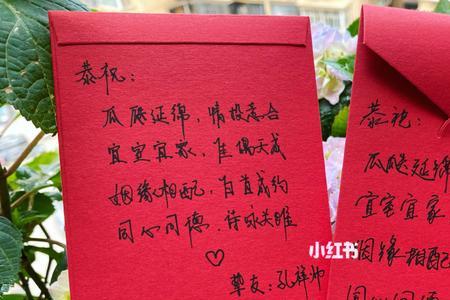 恭祝：
瓜瓞延绵，情投意合
宜室宜家，佳偶天成
姻缘相配，白首成约
同心同德，诗咏关雎
挚友：孔祥帅
恭祝：
瓜瓞延绵
宜室宜家
姻缘相配
同心同德
小红书